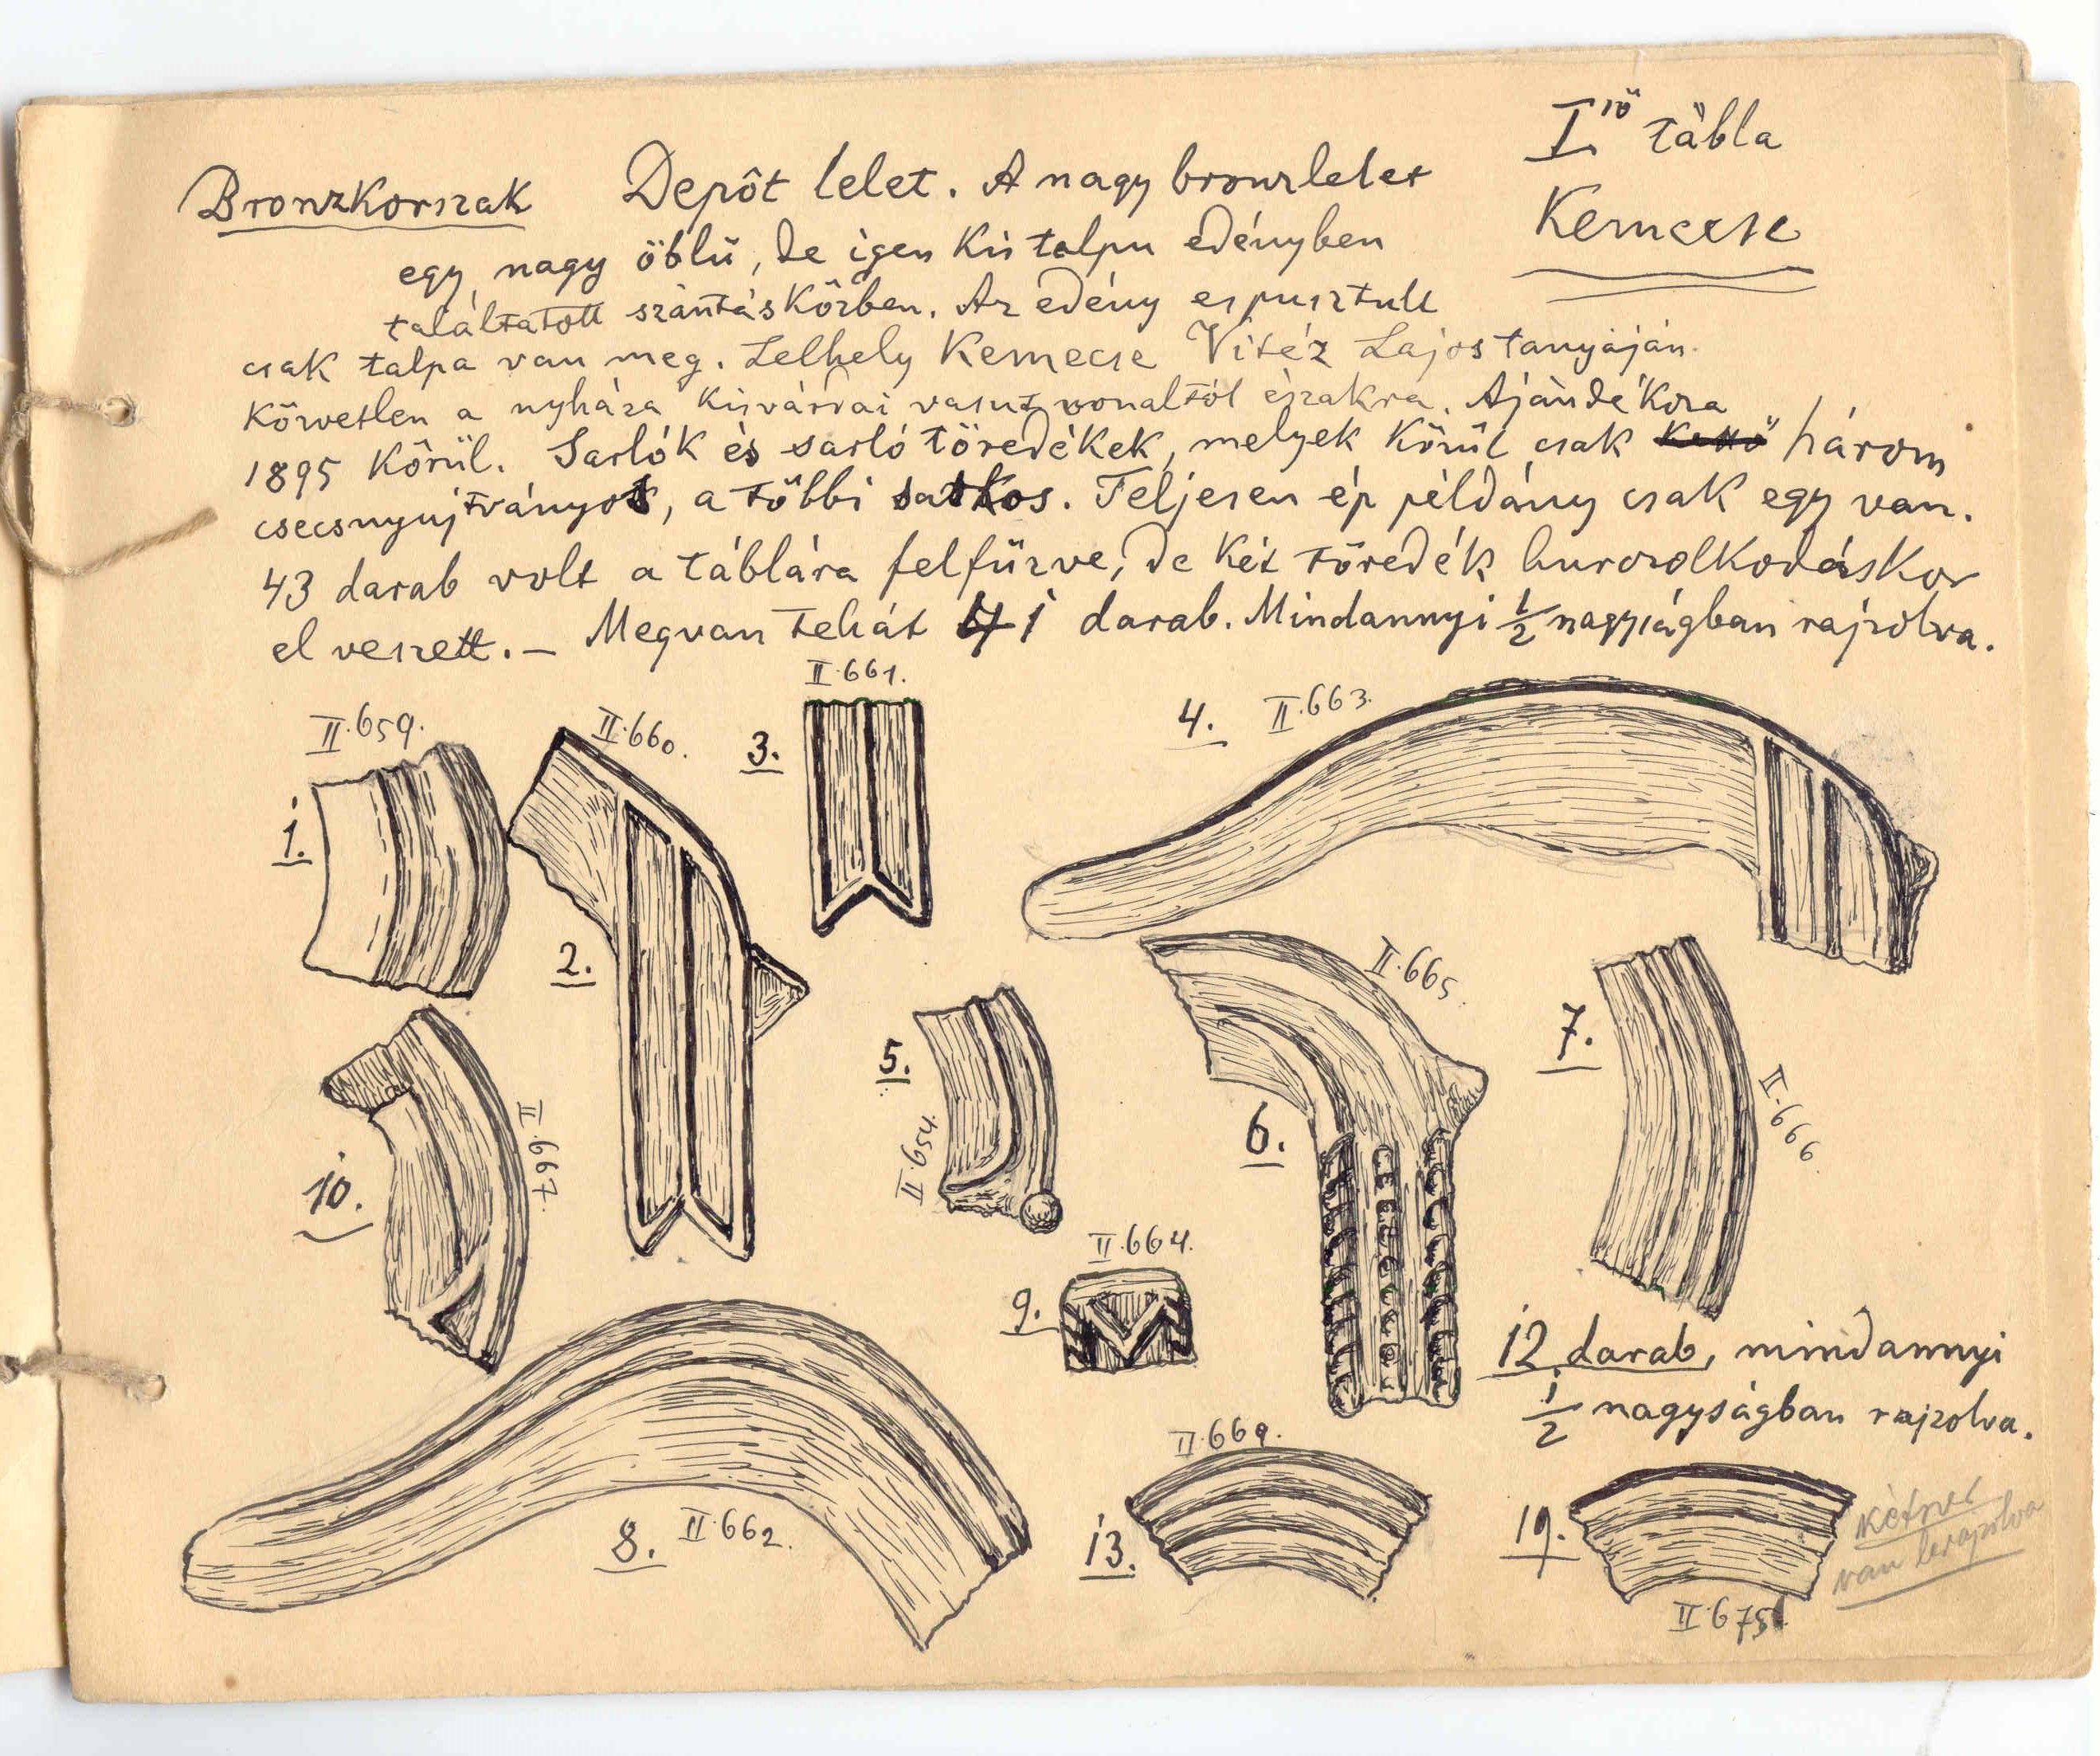 I.ső tábla
Kemecse
Bronzkorszak
Depôt lelet. A nagy bronzlelet
egy nagy öblü, de igen kis talpu edényben
találtatott szántás közben. Az edény espusztult
csak talpa van meg. Lelhely Kemecse Vitéz Lajos tanyáján.
Közvetlen a nyháza Kisvárdai vasut vonaltól északra. Ajándékoza
1895 körül. Sarlók és sarló töredékek, melyek közül csak kettő három
csecsnyujtványos, a többi satkos. Teljesen ép példány csak egy van.
43 darab volt a táblára felfüzve, de két töredék hurcolkodáskor
el veszett. – Megvan tehát 41 darab. Mindannyi 1/2 nagyságban rajzolva.
II.659.
1.
II.660.
2.
II.661.
3.
4.
II.663.
5.
II.654.
6.
II.665.
7.
II.666.
10.
II.667.
II.664.
9.
12 darab, mindannyi
1/2 nagyságban rajzolva.
8.
II.662.
II.669.
13.
19.
II.675
van lerajzolva